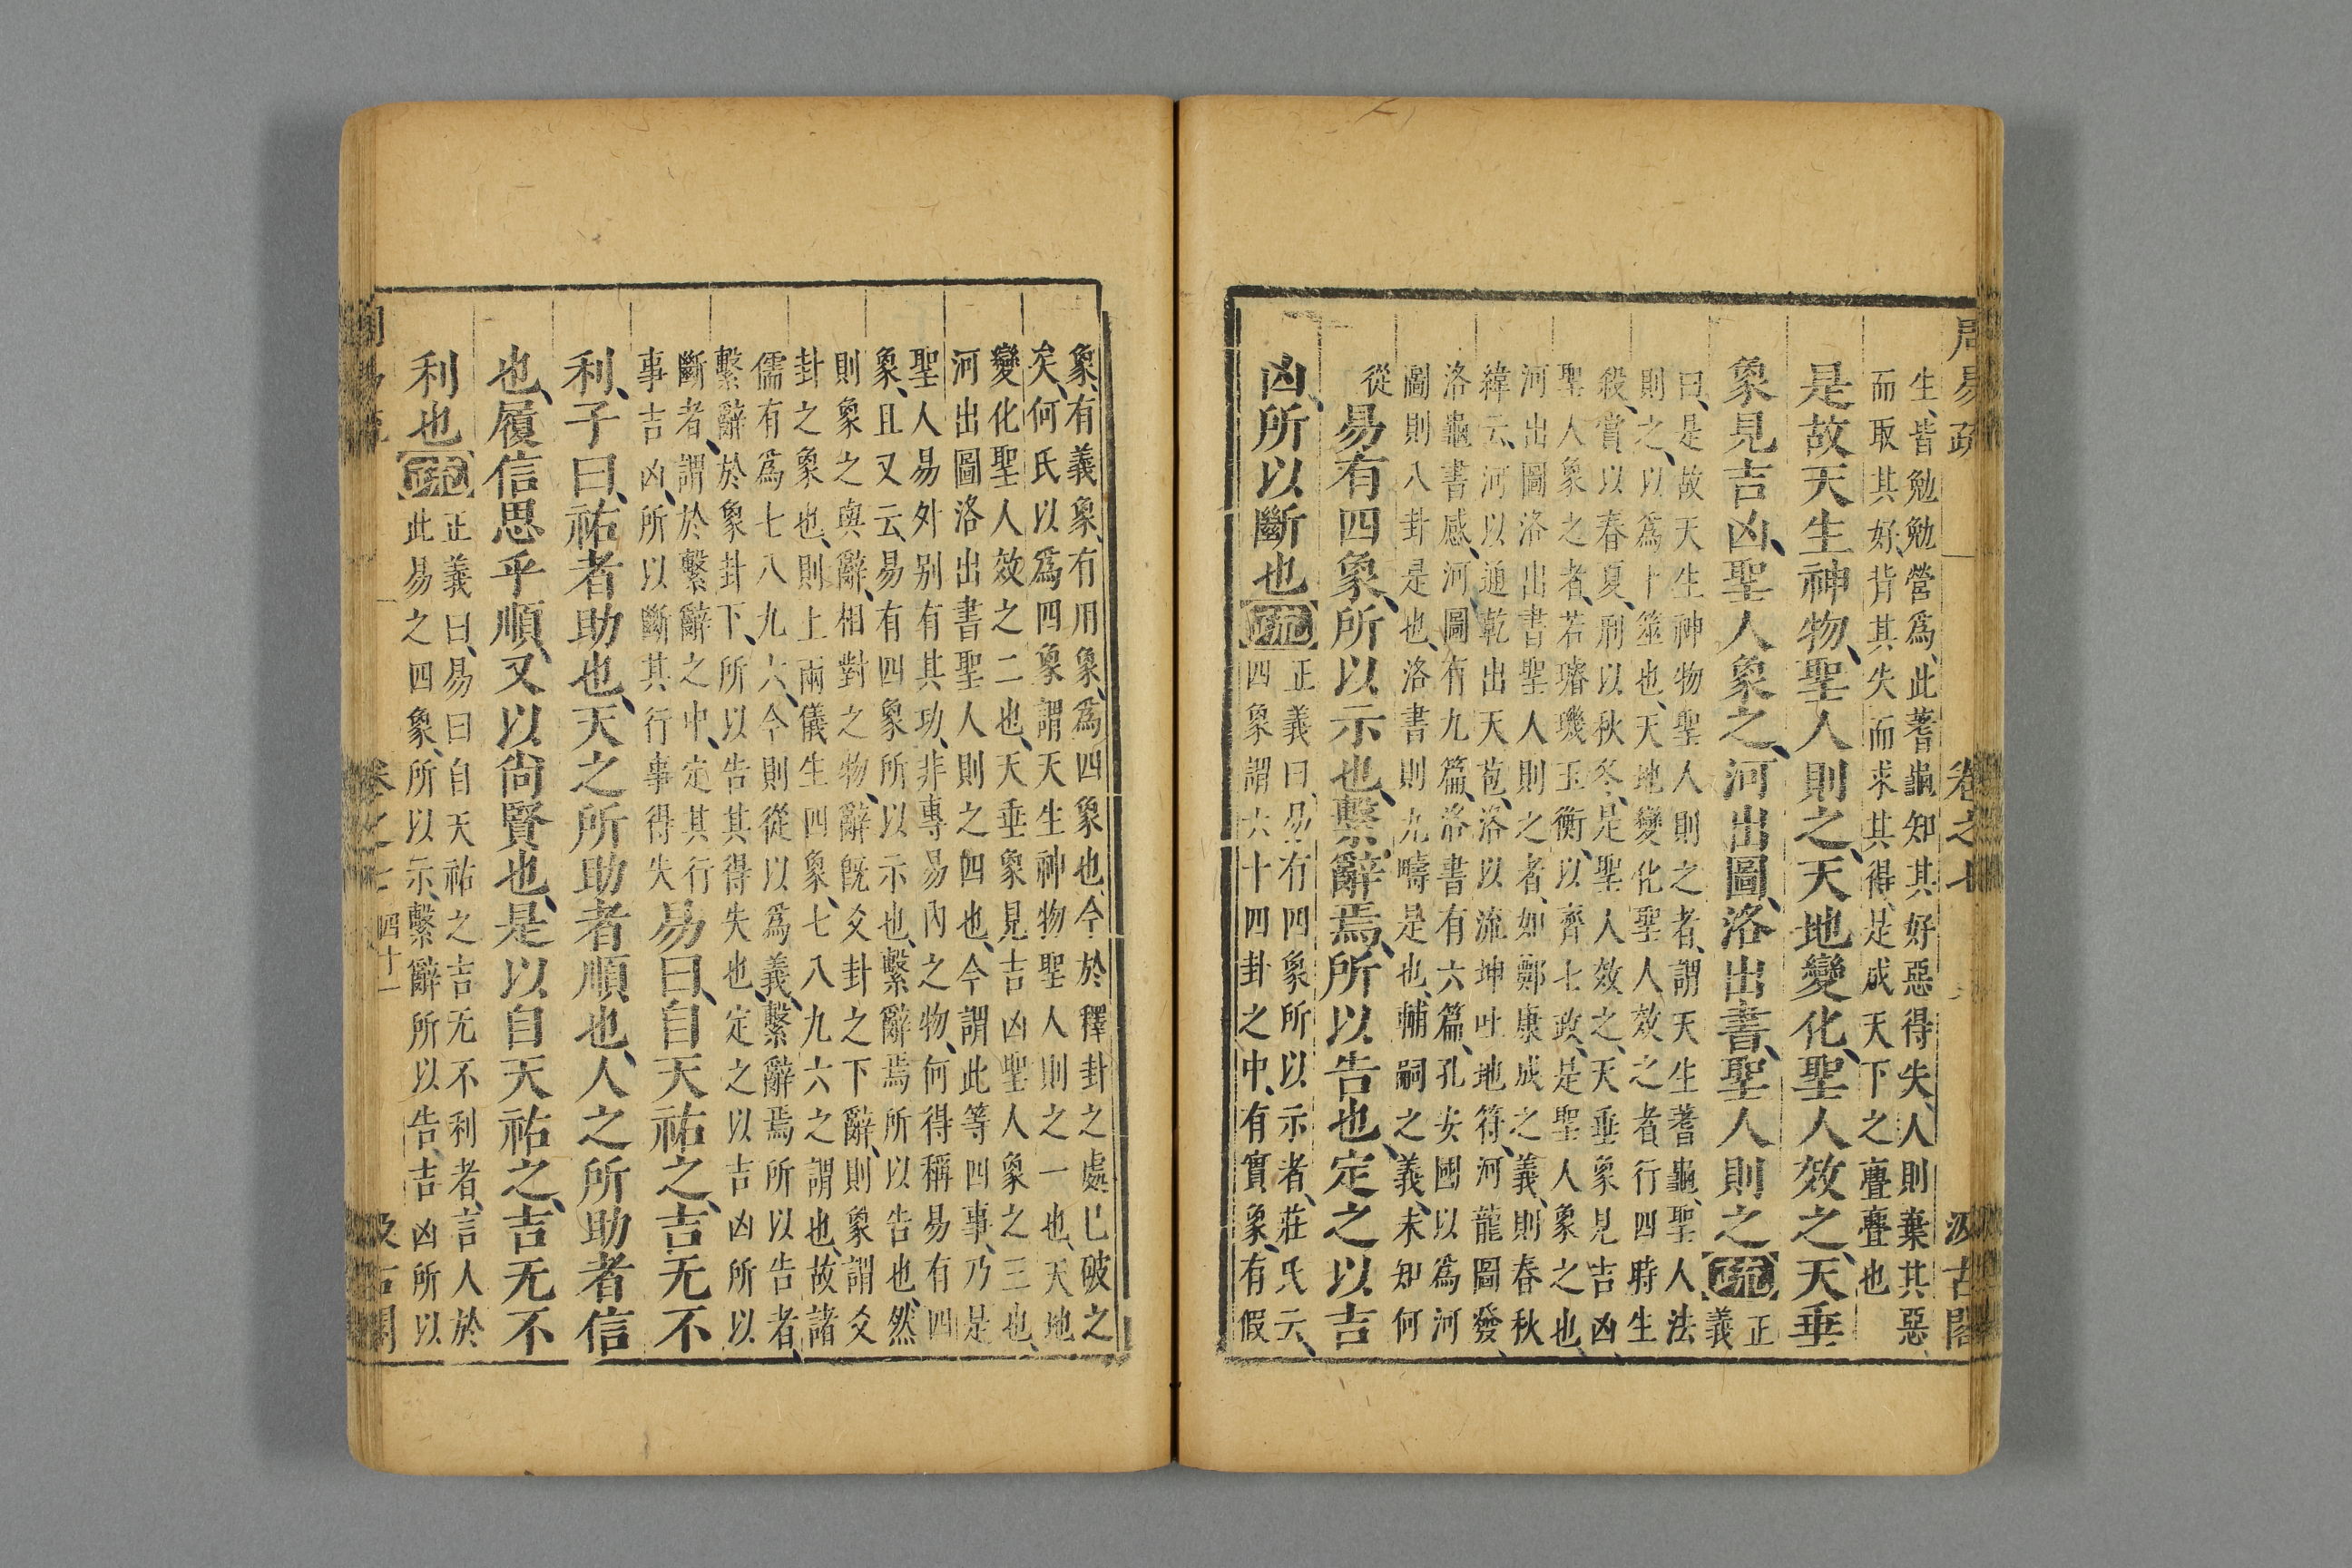 周易疏 卷之七 汲古閣
生、皆勉勉營爲、此蓍龜知其好惡得失、人則棄其惡
而取其好、背其失而求其得、是成天下之亹亹也
是故天生神物、聖人則之、天地變化、聖人效之、天垂
象見吉凶、聖人象之、河出圖、洛出書、聖人則之疏正
義
曰、是故天生神物聖人則之者、謂天生蓍龜、聖人法
則之、以爲卜筮也、天地變化聖人效之者、行四時生
殺、賞以春夏、刑以秋冬、是聖人效之、天垂象見吉凶、
聖人象之者、若璿璣玉衡、以齊七政、是聖人象之也、
河出圖洛出書聖人則之者、如鄭康成之義、則春秋
緯云、河以通乾出天苞、洛以流坤吐地符、河龍圖發、
洛龜書感、河圖有九篇、洛書有六篇、孔安國以爲河
圖則八卦是也、洛書則九疇是也、輔嗣之義、未知何
從
易有四象、所以示也、繫辭焉、所以告也、定之以吉
凶、所以斷也疏
正義曰、易有四象所以示者、莊氏云、
四象謂六十四卦之中、有實象、有假
象、有義象、有用象、爲四象也、今於釋卦之處已破之
矣、何氏以爲四象謂天生神物聖人則之一也、天地
變化聖人效之二也、天垂象見吉凶聖人象之三也、
河出圖洛出書聖人則之四也、今謂此等四事、乃是
聖人易外别有其功、非專易內之物、何得稱易有四
象、且又云、易有四象所以示也、繫辭焉所以告也、然
則象之與辭、相對之物、辭旣爻卦之下辭、則象謂爻
卦之象也、則上兩儀生四象、七八九六之謂也、故諸
儒有爲七八九六、今則從以爲義、繫辭焉所以告者、
繫辭於象卦下、所以告其得失也、定之以吉凶所以
斷者、謂於繫辭之中、定其行
事吉凶、所以斷其行事得失
易曰、自天祐之、吉无不
利、子曰、祐者助也、天之所助者順也、人之所助者信
也、履信思乎順、又以尚賢也、是以自天祐之、吉无不
利也疏
正義曰、易曰自天祐之吉无不利者、言人於
此易之四象、所以示、繫辭所以告、吉凶所以
卷之七 四十一